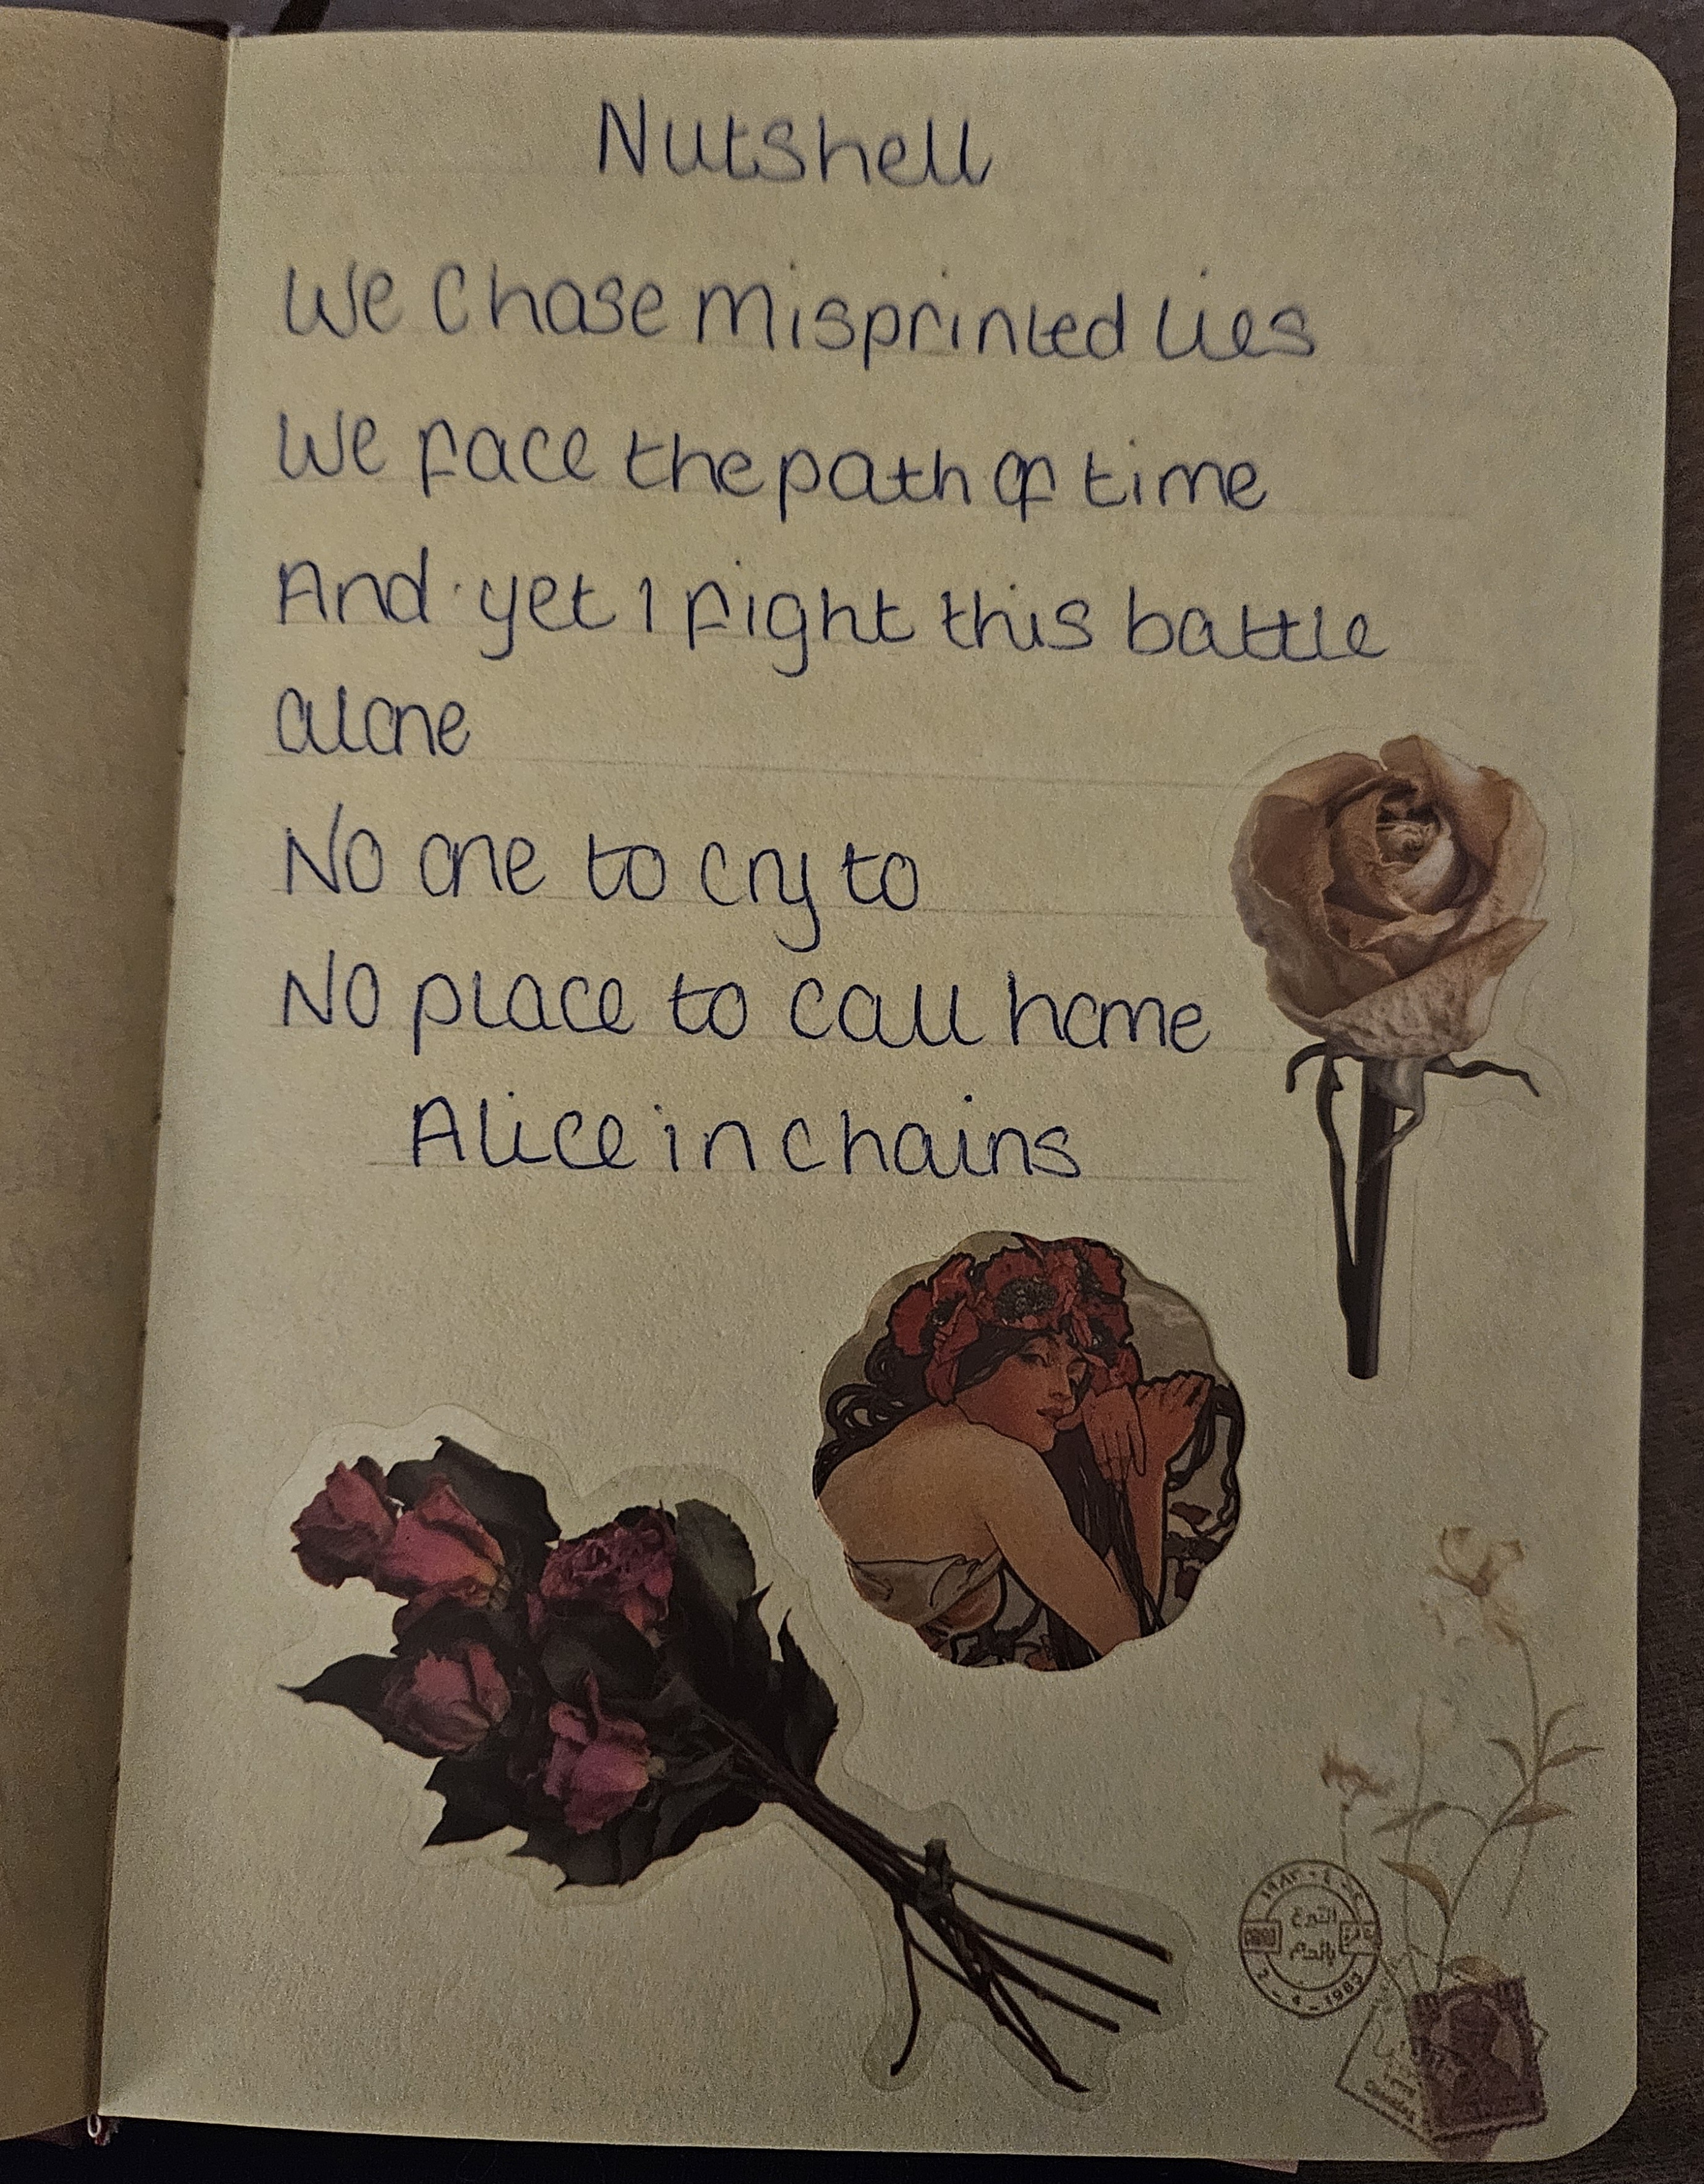 Nutshell
We Chase Misprinted lies
We face the path of time
And yet I fight this battle
alone
No one to cry to
No place to call home
Alice in chains
التبرع
بالدم
2-4-1983